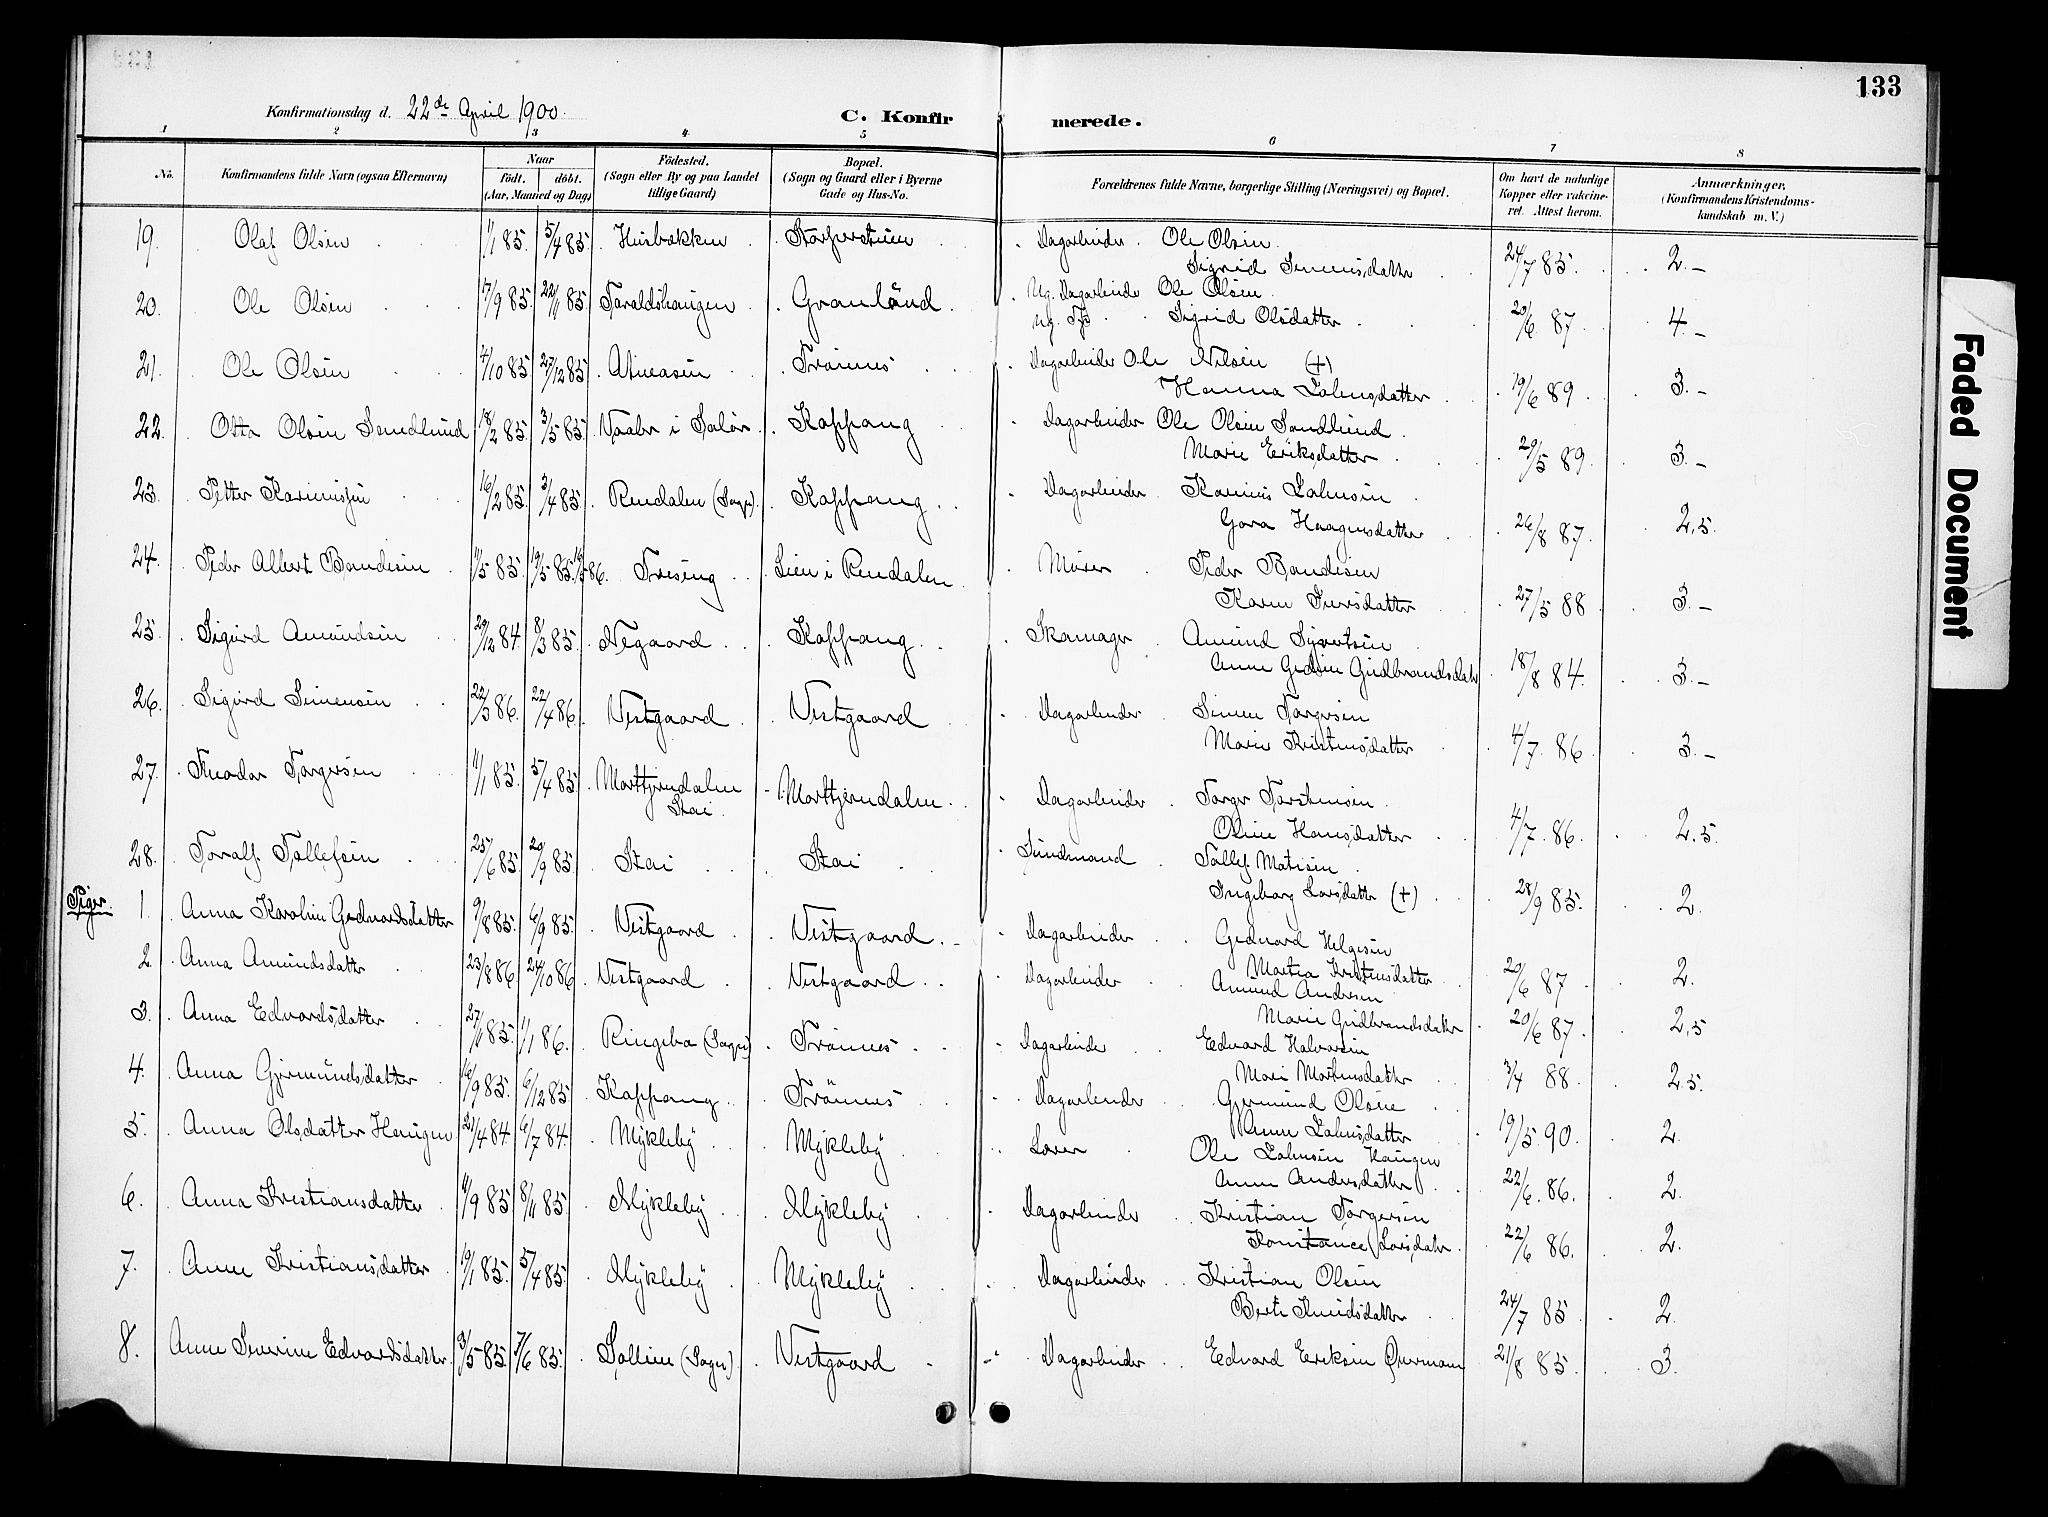 133
Konfirmationsdag d. 22de April 1900.
C. Konfirmerede.
1 2 3 4 5 6 7 8
No. Konfirmandens fulde Navn (ogsaa Efternavn) Naar født. døbt. (Aar, Maaned og Dag) Fødested. (Sogn eller By og paa Landet tillige Gaard) Bopæl. (Sogn og Gaard eller i Byerne Gade og Hus-No. Forældrenes fulde Navne, borgerlige Stilling (Næringsvei) og Bopæl. Om havt de naturlige Kopper eller vakcineret. Attest herom. Anmærkninger. (Konfirmandens Kristendomskundskab m. V.)
19. Olaf Olsen 1/1 85. 5/4 85. Husbakken Dagarbeider Ole Olsen
Sigrid Simensdatter 24/7 85. 2.-
20. Ole Olsen 17/9 85. 22/11 85. Taraldshaugen Granlund Ug. Dagarbeider Ole Olsen
Ug. Sigrid Olsdatter 20/6 87. 4.-
21. Ole Olsen 4/10 85. 27/12 85. Atneosen Trønnes Dagarbeider Ole Nilsen (+)
Hanna Johnsdatter 19/6 89. 3.-
22. Otto Olsen Sandlund 18/2 85. 3/5 85. Vaaler i Solør Koppang Dagarbeider Ole Olsen Sandlund
Marie Eriksdatter 29/5 89. 3.-
23. Petter Karinussen 16/2 85. 3/4 85. Rendalen (Sogn) Koppang Dagarbeider Karinus Johnsen
Gora Haagensdatter 26/8 87. 2,5.
24. Peder Albert Bondesen 1/5 85. 19/5 85. Lien i Rendalen Murer Peder Bondesen
Karen Iversdatter 27/5 88. 3.-
25. Sigurd Amundsen 29/12 84. 8/3 85. Negaard Koppang Skomager Amund Syvertsen
Anne Gudbrandsdatr 18/8 84. 3.-
26. Sigurd Simensen 22/3 86. 22/4 86. Vestgaard Vestgaard Dagarbeider Simen Torgersen
Marie Kristensdatter 4/7. 86 3.-
27. Theodor Torgersen 11/1 85. 5/4 85. Morttjerndalen Stai Morttjerndalen Dagarbeider Torger Torstensen
Oline Hansdatter 4/7. 86. 2,5.
28. Toralf Tollefsen 25/6 85 20/9 85. Stai Stai Sundmand Tollef Matisen
Ingeborg Larsdatter (+) 28/9 85. 2.
Piger.
1. Anna Karoline Gedvardsdatter 9/8 85. 6/9 85. Vestgaard Vestgaard Dagarbeider Gedvard Helgesen
Martea Kristensdatter 20/6 87 2.
2. Anna Amundsdatter 23/8 86 24/10 86 Vestgaard Vestgaard Dagarbeider Amund Andersen
Marie Gudbrandsdatr 20/6 87. 2,5
3. Anna Edvardsdatter 27/11 85. 1/1 86. Ringebu (Sogn) Trønnes Dagarbeider Edvard Halvorsen
Mari Mortensdatter 3/4 88. 2,5.
4. Anna Gjermundsdatter 16/9 85. 6/12 85 Koppang Trønnes Dagarbeider Germund Olsen
Anne Johnsdatter 19/5 90. 2.
5. Anna Olsdatter Haugen 21/4 84. 6/7 84. Mykleby Mykleby Ole Johnsen Haugen
Anne Andersdatter 22/6. 86. 2.
6. Anna Kristiansdatter 11/9 85 8/11 85 Mykleby Mykleby Dagarbeider Kristian Torgersen
Konstance Larsdatr. 22/6 86. 2.
7. Anne Kristiansdatter 19/1 85. 5/4 85. Mykleby Mykleby Dagarbeider Kristian Olsen
Berte Knudsdatter 24/7 85 2.
8. Anne Severine Edvardsdatter 3/5 85. 7/6 85. Sollien (Sogn) Vestgaard Dagarbeider Edvard Eriksen 21/8 85. 3.
Faded Document